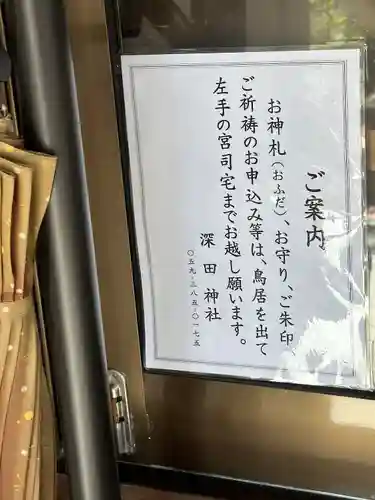 ご案内
お神札(おふだ)、お守り、ご朱印
ご祈祷のお申込み等は、鳥居を出て
左手の宮司宅までお越し願います。
深田神社
〇五九-三八五-〇一七五